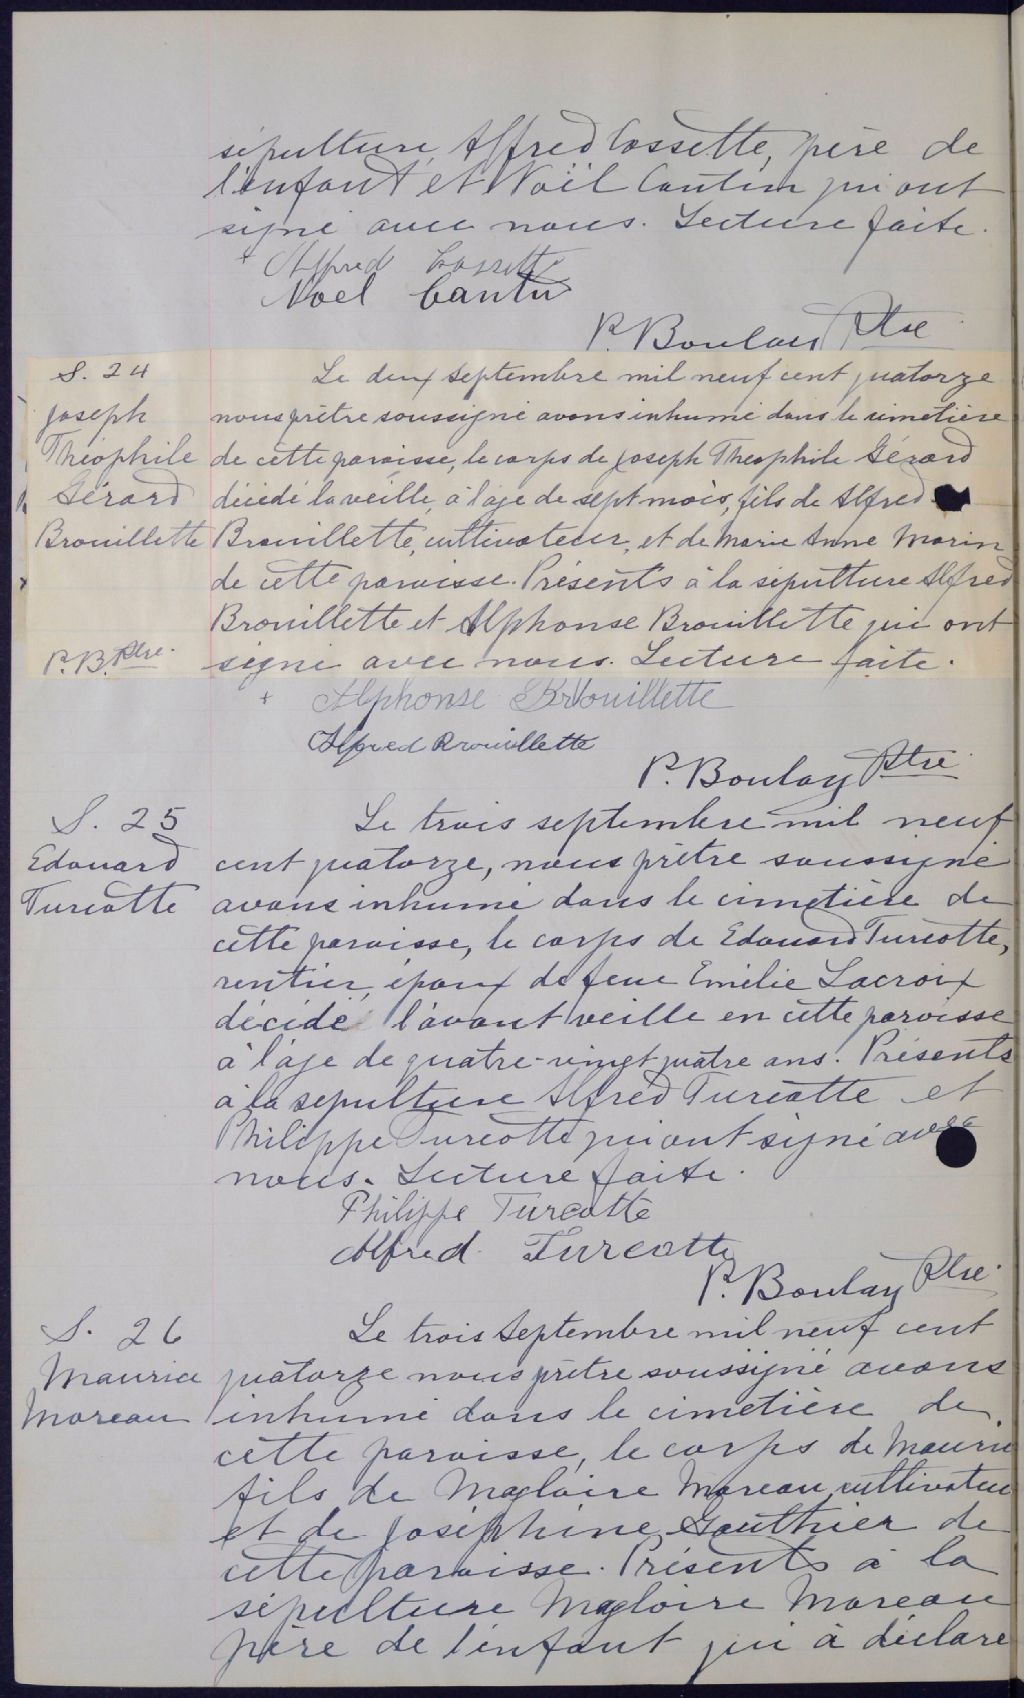 sépulture, Alfred Cossette, père de
l'enfant et Noël Cantin qui ont
signé avec nous. Lecture faite.
+ Alfred Cossette
Noel Cantin
P. Boulay Ptre
S. 24
Joseph
Théophile
Gérard
Brouillette
P. B. Ptre.
Le deux septembre mil neuf cent quatorze
nous prêtre soussigné avons inhumé dans le cimetière
de cette paroisse, le corps de Joseph Théophile Gérard
décédé la veille, à l'âge de sept mois, fils de Alfred
Brouillette, cultivateur, et de Marie Anne Morin
de cette paroisse. Présents à la sépulture Alfred
Brouillette et Alphonse Brouillette qui ont
signé avec nous. Lecture faite.
+ Alphonse Brouillette
Alfred Brouillette
P. Boulay Ptre
S. 25
Edouard
Turcotte
Le trois septembre mil neuf
cent quatorze, nous prêtre soussigné
avons inhumé dans le cimetière de
cette paroisse, le corps de Edouard Turcotte,
rentier, époux de feue Emélie Lacroix
décédé l'avant veille en cette paroisse
à l'âge de quatre-vingt quatre ans. Présents
à la sépulture Alfred Turcotte et
Philippe Turcotte qui ont signé avec
nous. Lecture faite.
Philippe Turcotte
Alfred Turcotte
P. Boulay Ptre.
S. 26
Maurice
Moreau
Le trois Septembre mil neuf cent
quatorze nous prêtre soussigné avons
inhumé dans le cimetière de
cette paroisse, le corps de Maurice
fils de Magloire Moreau, cultivateur
et de Joséphine Gauthier de
cette paroisse. Présents à la
sépulture Magloire Moreau
père de l'enfant qui a déclaré